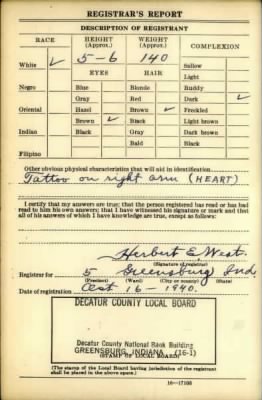 REGISTRAR'S REPORT
DESCRIPTION OF REGISTRANT
RACE HEIGHT (Approx.) WEIGHT (Approx.) COMPLEXION
White ✓ 5-6 140 Sallow
EYES HAIR Light
Negro Blue Blonde Ruddy
Gray Red Dark ✓
Oriental Hazel Brown ✓ Freckled
Brown ✓ Black Light brown
Indian Black Gray Dark brown
Bald Black
Filipino
Other obvious physical characteristics that will aid in identification
Tattoo on right arm (HEART)
I certify that my answers are true; that the person registered has read or has had
read to him his own answers; that I have witnessed his signature or mark and that
all of his answers of which I have knowledge are true, except as follows:
Herbert E. West.
(Signature of registrar)
Registrar for 5 Greensburg Ind,
(Precinct) (Ward) (City or county) (State)
Date of registration Oct 16 - 1940.
DECATUR COUNTY LOCAL BOARD
Decatur County National Bank Building
GREENSBURG, INDIANA (16-1)
(STAMP OF LOCAL BOARD)
(The stamp of the Local Board having jurisdiction of the registrant
shall be placed in the above space.)